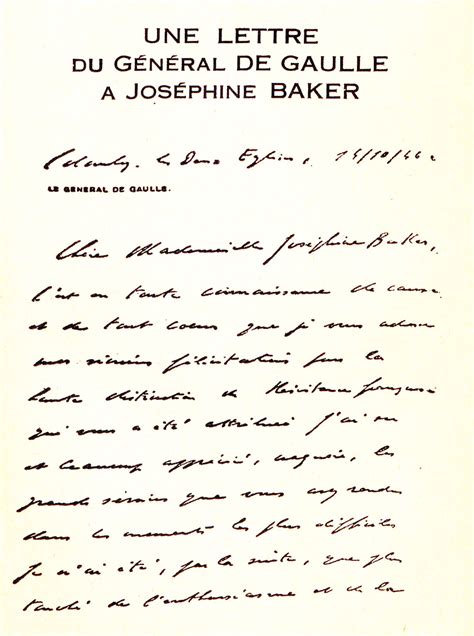 UNE LETTRE
DU GÉNÉRAL DE GAULLE
A JOSÉPHINE BAKER
Colombey les Deux Eglises, 14/10/46.
LE GENERAL DE GAULLE.
Chère Mademoiselle Joséphine Baker,
C'est en toute connaissance de cause
et de tout coeur que je vous adresse
mes sincères félicitations pour la
haute distinction de Résistance française
qui vous a été attribuée J'ai vu
et beaucoup apprécié, naguère, les
grands services que vous avez rendus
dans les moments les plus difficiles
Je n'ai été, par la suite, que plus
touché de l'enthousiasme et de la